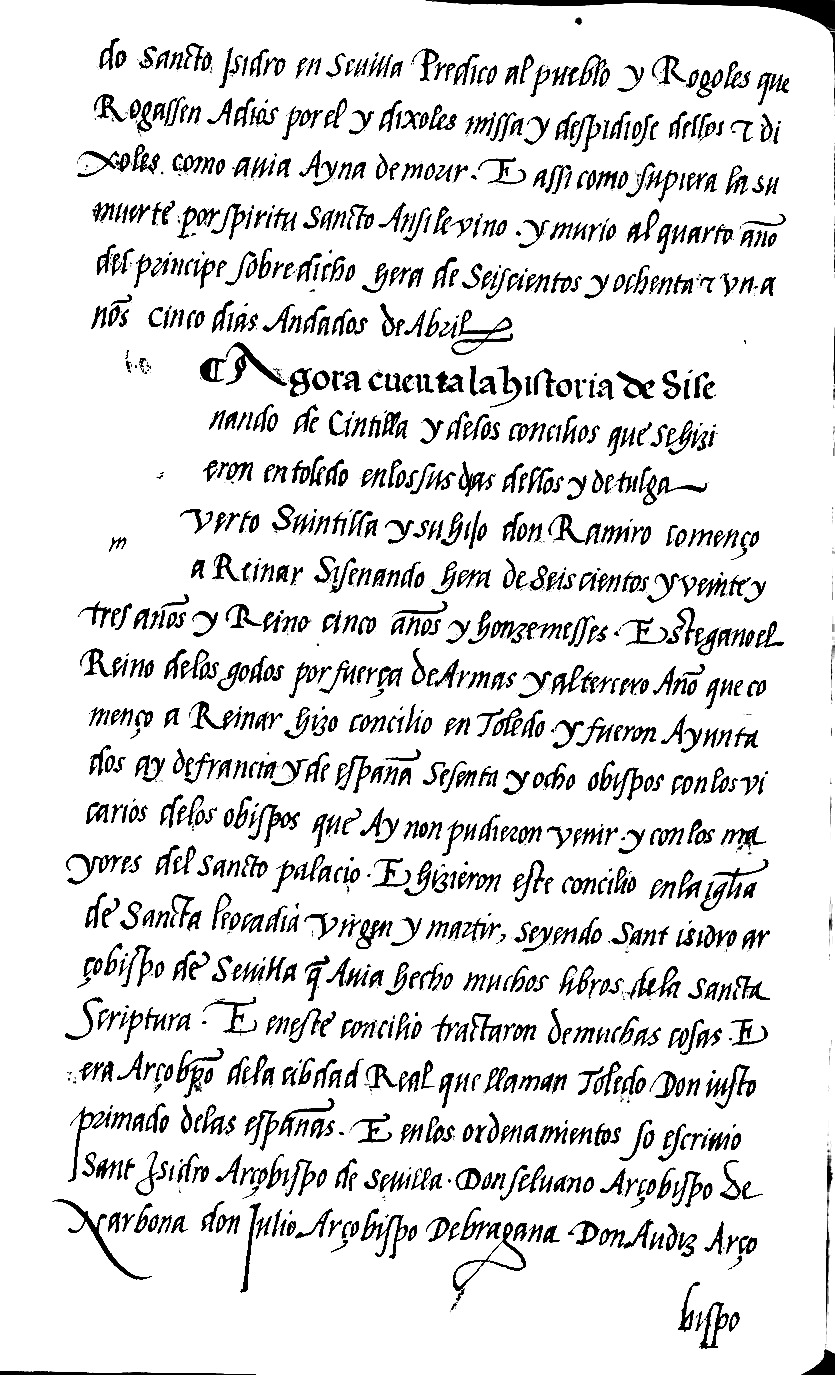 do Sancto Isidro en Sevilla Predico al pueblo y Rogoles que
Rogassen Adios por el y dixoles missa y despidiose dellos ⁊ di
xoles como auia Ayna de morir. E assi como supiera la su
muerte por spiritu Sancto Ansi le vino y murio al quarto año
del principe sobredicho hera de Seiscientos y ochenta ⁊ vn a
nõs Cinco dias Andados de Abril
Agora cuenta la historia de Sise
nando de Cintilla y delos concilios que se hizi
eron en toledo en los sus dias dellos y de tulga
m
verto Suintilla y su hijo don Ramiro començo
a Reinar Sisenando hera de Seis cientos y veinte y
tres años y Reino cinco años y honze messes. E este gano el
Reino delos godos por fuerça de Armas y al tercero Año que co
menço a Reinar hizo concilio en Toledo y fueron Ayunta
dos ay de francia y de españa Sesenta y ocho obispos con los vi
carios delos obispos que Ay non pudieron venir y con los ma
yores del sancto palacio. E hizieron este concilio en la iglia
de Sancta leocadia virgen y martir, seyendo Sant isidro ar
çobispo de Sevilla q̃ Auia hecho muchos libros de la sancta
Scriptura. E en este concilio tractaron de muchas cosas. E
era Arçobpõ de la cibdad Real que llaman Toledo Don iusto
primado delas españas. E en los ordenamientos so escriuio
Sant Isidro Arçobispo de sevilla. Don seluano Arçobispo de
Narbona don Julio Arçobispo De bragana Don Audiz Arço
bispo